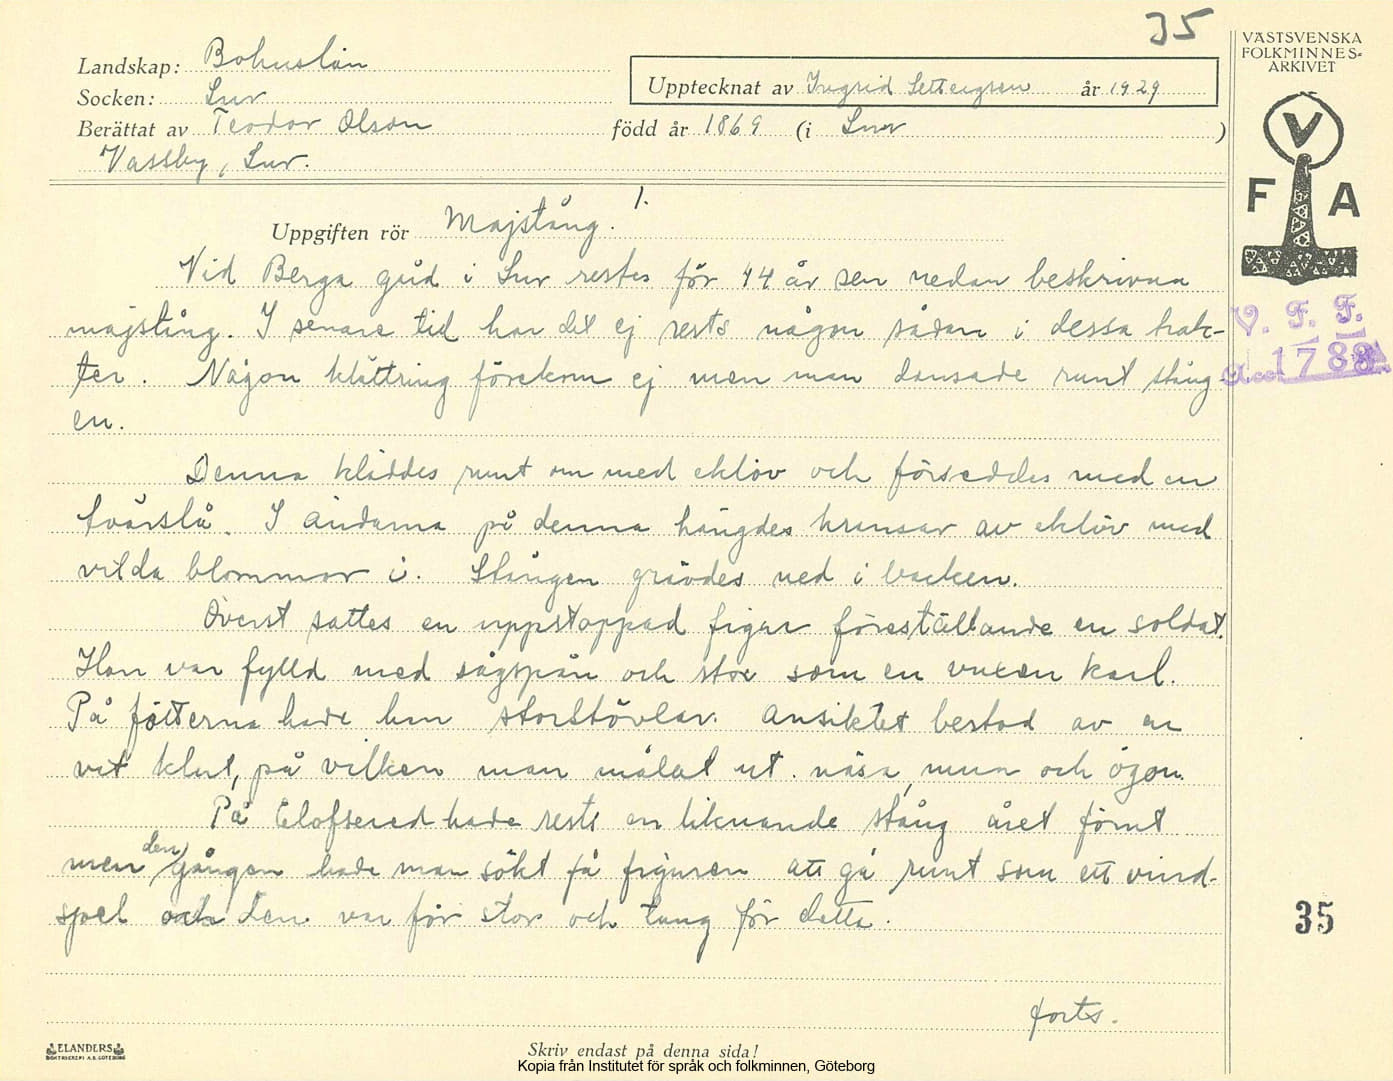 35
VÄSTSVENSKA
FOLKMINNES-
ARKIVET
Landskap: Bohuslän
Upptecknat av Ingrid år 1929
Socken: Lur
Berättat av Teodor Olson född år 1869 (i Lur )
Vassby, Lur.
V
F A
1.
Uppgiften rör Majstång.
Vid Berga gåd i Lur restes för 44 år sen nedan beskrivna
majstång. I senare tid har det ej rests någon sådan i dessa trak-
ter. Någon klättring förekom ej men man dansade runt stång
en.
V. F. F.
Acc. 1788
Denna kläddes runt om med eklöv och förseddes med en
tvärslå. I ändarna på denna hängdes kransar av eklöv med
vilda blommor i. Stången grävdes ned i backen.
Överst sattes en uppstoppad figur föreställande en soldat.
Han var fylld med sågspån och stor som en vuxen karl.
På fötterna hade han storstövlar. Ansiktet bestod av en
vit klut, på vilken man målat ut näsa, mun och ögon.
På Elofsered hade rests en liknande stång året förut
men den gången hade man sökt få figuren att gå runt som ett vind-
spel och den var för stor och tung för detta.
35
forts.
ELANDERS
BOKTRYCKERI A.B. GÖTEBORG
Skriv endast på denna sida!
Kopia från Institutet för språk och folkminnen, Göteborg